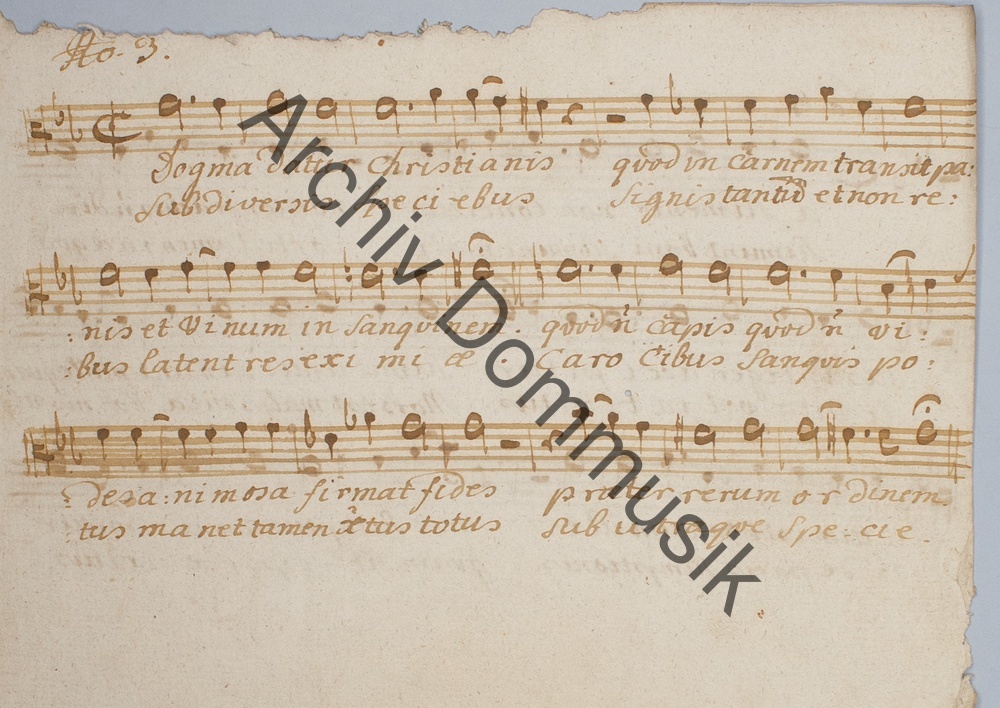 No. 3.
Dogma datur Christianis quod in Carnem transit pa:
Sub diversis speciebus Signis tantũ et non re:
:nis et Vinum in Sanquinem. quod ñ Capis quod ñ vi:
:bus latent res exi mi æ. Caro Cibus Sanquis po:
:des a:ni mosa firmat fides præter rerum ordinem.
:tus ma net tamen x̃tus totus Sub utraque Spe:cie.
Archiv Dommusik